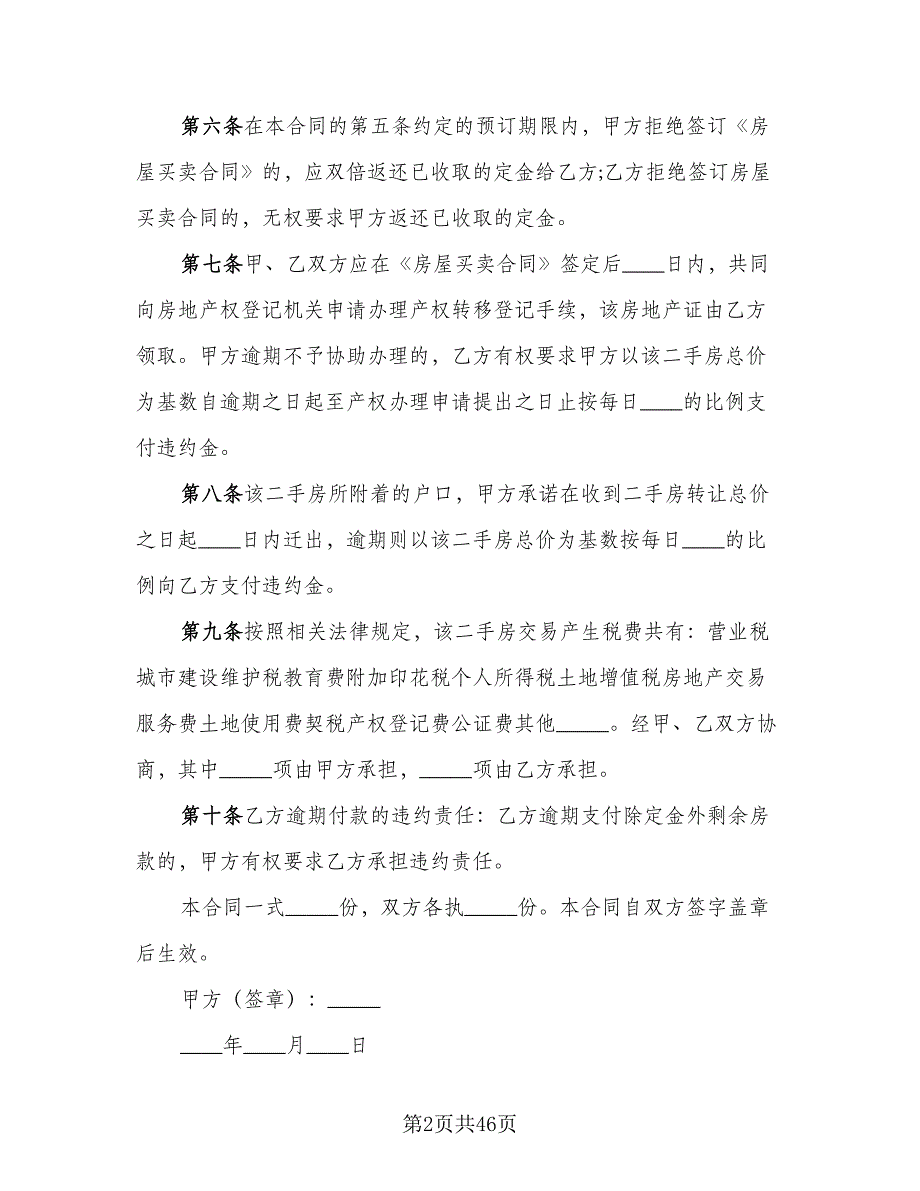 第六条在本合同的第五条约定的预订期限内，甲方拒绝签订《房
屋买卖合同》的，应双倍返还已收取的定金给乙方;乙方拒绝签订房屋
买卖合同的，无权要求甲方返还已收取的定金。
第七条甲、乙双方应在《房屋买卖合同》签定后____日内，共同
向房地产权登记机关申请办理产权转移登记手续，该房地产证由乙方
领取。甲方逾期不予协助办理的，乙方有权要求甲方以该二手房总价
为基数自逾期之日起至产权办理申请提出之日止按每日____的比例支
付违约金。
第八条该二手房所附着的户口，甲方承诺在收到二手房转让总价
之日起____日内迁出，逾期则以该二手房总价为基数按每日____的比
例向乙方支付违约金。
第九条按照相关法律规定，该二手房交易产生税费共有：营业税
城市建设维护税教育费附加印花税个人所得税土地增值税房地产交易
服务费土地使用费契税产权登记费公证费其他_____。经甲、乙双方协
商，其中_____项由甲方承担，_____项由乙方承担。
第十条乙方逾期付款的违约责任：乙方逾期支付除定金外剩余房
款的，甲方有权要求乙方承担违约责任。
本合同一式_____份，双方各执_____份。本合同自双方签字盖章
后生效。
甲方（签章）：_____
____年____月____日
第2页共46页